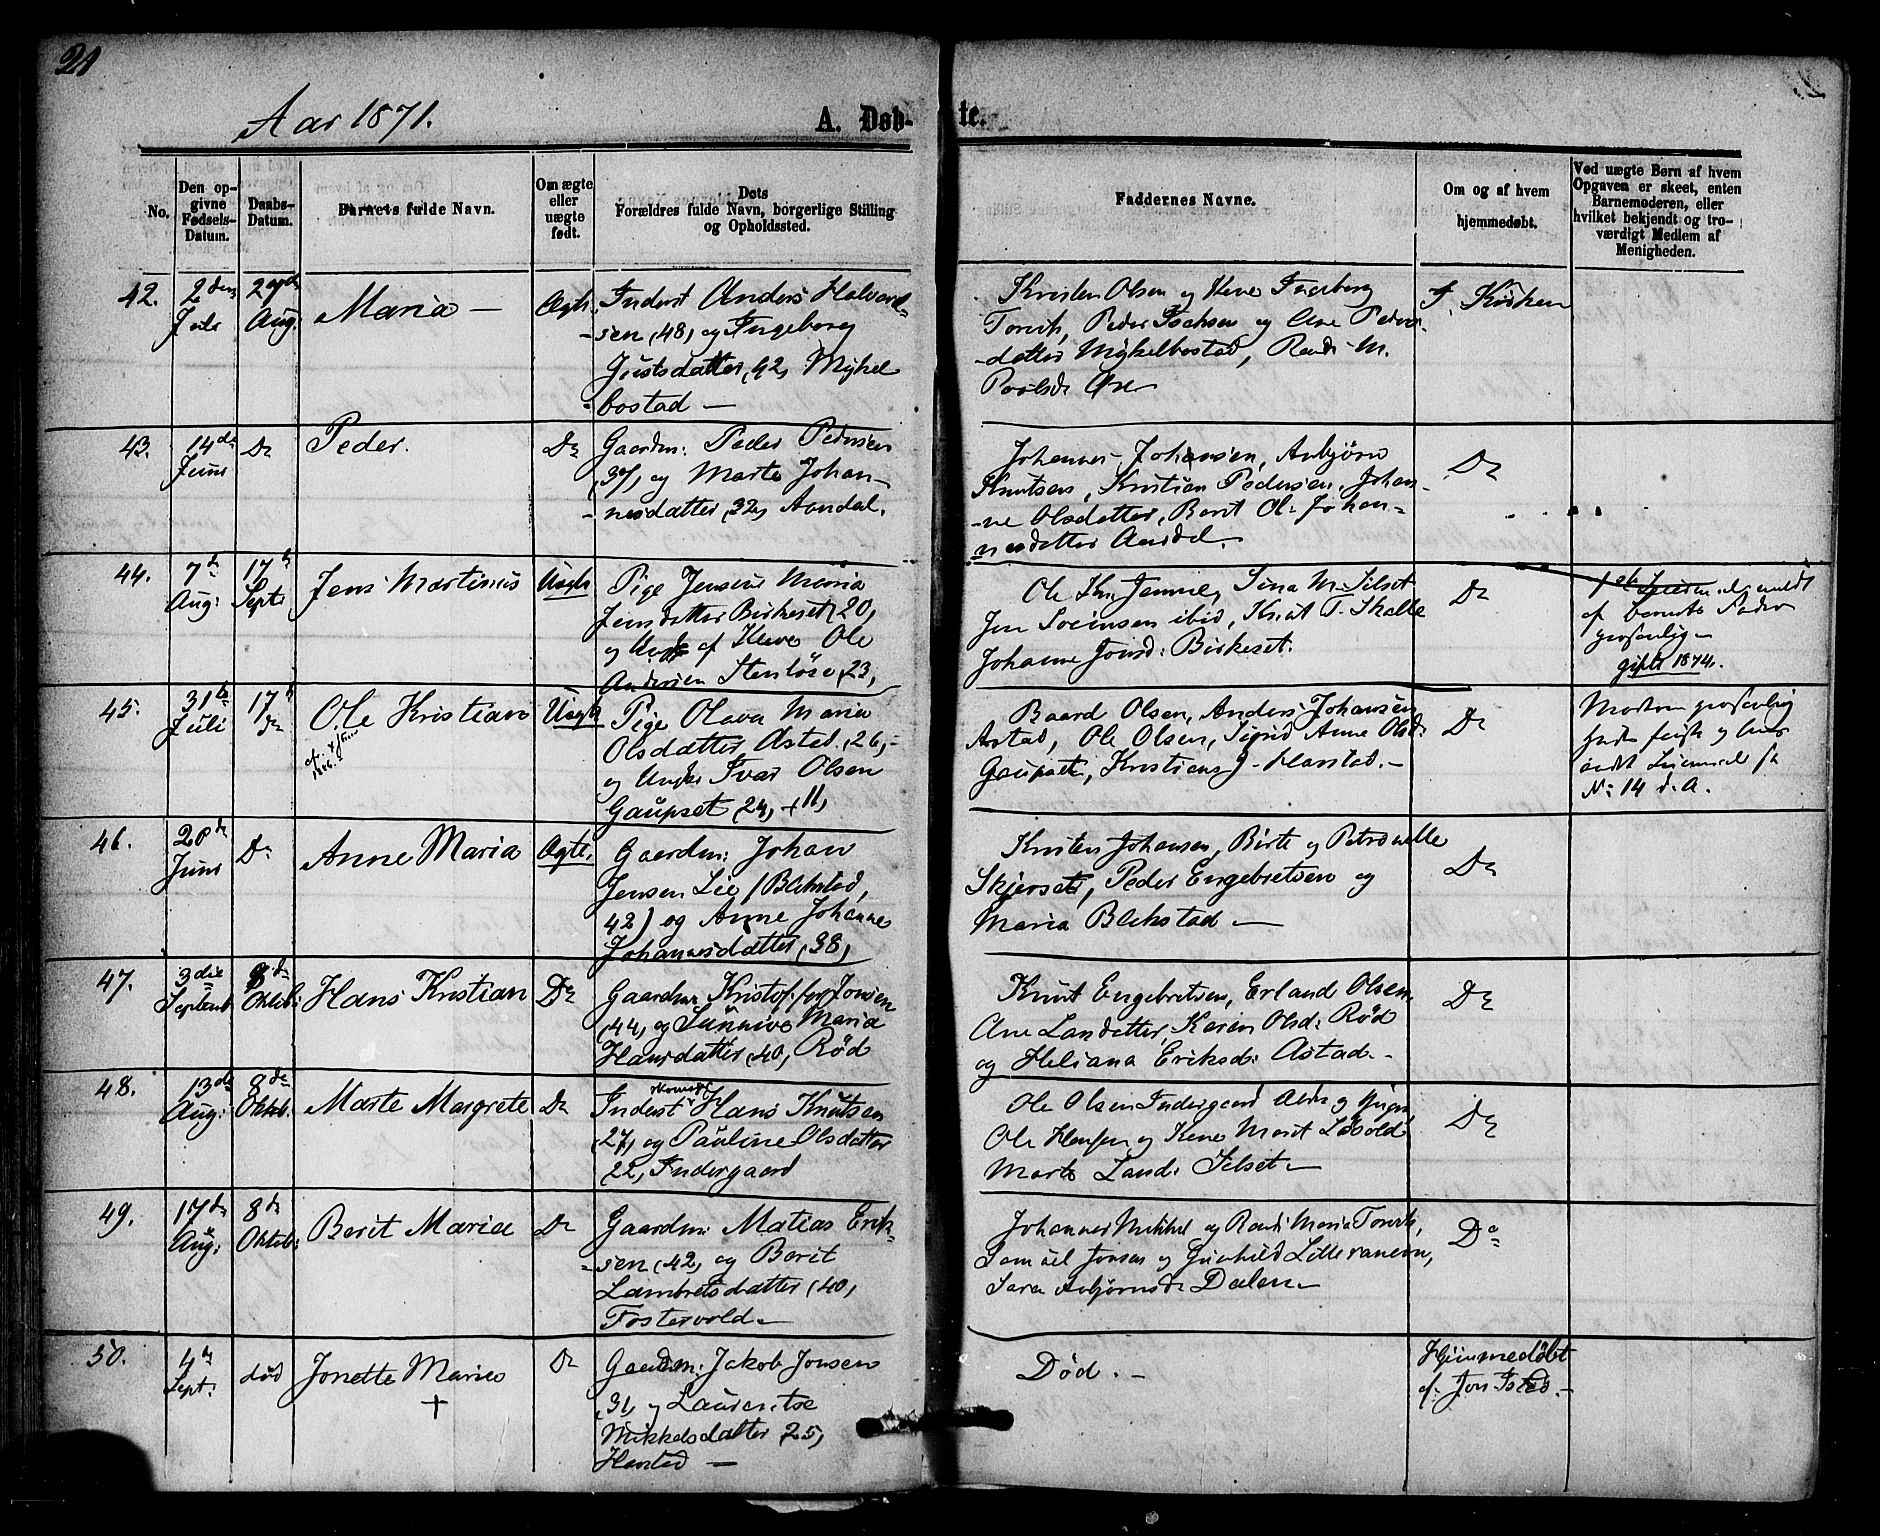 20
Aar 1871.
A. Døb-
te.
No.
Den op-
givne
Fødsels-
Datum.
Daabs-
Datum.
Barnets fulde Navn.
Om ægte
eller
uægte
født.
Dets
Forældres fulde Navn, borgerlige Stilling
og Opholdssted.
Faddernes Navne.
Om og af hvem
hjemmedøbt.
Ved uægte Børn af hvem
Opgaven er skeet, enten
Barnemoderen, eller
hvilket bekjendt og tro-
værdigt Medlem af
Menigheden.
42.
2den
Juli
27de
Aug.
Maria —
Ægte
Inderst Anders Halvord-
-sen (48) og Ingeborg
Justsdatter, 42, Myhel
bostad —
Kristen Olsen og Kone Ingeborg
Torvik, Peder Isachsen og Ane Peders-
-datter Myhelbostad, Rand M.
Povlsd. Øre
I Kirken
43.
14de
Juni
Do
Peder.
Do
Gaardm: Peder Pedersen
(37, og Marte Johan-
-nesdatter, 32, Aandal.
Johannes Johansen, Anbjørn
Knutsen, Kristian Pedersen, Johan-
-ne Olsdatter, Berit Ol. Johan-
nesdatter Aandal.
Do
44.
7de
Aug:
17de
Sept:
Jens Martinus
Uægte
Pige Jensine Maria
Jensdatter Birkeset (20,
og Ungk. af Kleve Ole
Andersen Stenløse (23,
Ole Kn. Jemne, Sina M. Silset
Jen Sörensen ibid, Knut T. Skalle
Johanne Jonsd: Birkeset.
Do
af barnets Fader
personlig —
gifte 1874.
45.
31te
Juli
17de
Do
Ole Kristian
1886.
Uægte
Pige Olava Maria
Olsdatter, Astad, 26,-
og Ungk. Ivar Olsen
Gaupset (24, + 11,
Baard Olsen, Anders Johansen
Astad, Ole Olsen, Sigrid Anne Olsd:
Gaupset, Kristian J. Harstad. —
Do
Moderen personlig
No: 14 d. A.
46.
20de
Juni
Do
Anne Maria
Ægte.
Gaardm: Johan
Jensen Lie / Blekstad,
42) og Anne Johanne
Johannesdatter, (38,
Kristen Johansen, Birte og Petronelle
Skjerset, Peder Engebretsen og
Maria Blekstad —
Do
47.
3die
Septemb
8de
Oktob:
Hans Kristian
Do
Gaardm. Kristoffer Jonsen
(44, og Sunnive Maria
Hansdatter (40, Rød
Knut Engebretsen, Erland Olsen
Ane Larsdatter, Karen Olsd: Rød
og Heliana Eriksd: Astad. —
Do
48.
13de
Aug:
8de
Oktob.
Marte Margrete
Do
Inderst Hans Knutsen
(27, og Pauline Olsdatter
22, Indergaard
Ole Olsen Indergaard
Ole Hansen og Kone Marit Løvold
Marte Larsd: Silset —
Do
49.
17de
Aug:
8de
Oktob:
Berit Maria
Do
Gaardm: Matias Erik-
-sen (42, og Berit
Lambretsdatter (40,
Fostervold —
Johannes Mikkel og Rand Maria Torvik,
Samuel Jonsen og Gunhild Lillevanen,
Sara Anbjørnsd Dalen —
Do
50.
4de
Sept:
død
Jonette Marie
+
Do
Gaardm: Jakob Jonsen
(31, og Lauentse
Mikkelsdatter 25,
Harstad —
Død. —
Hjemmedøbt
af: Jon Istad. —